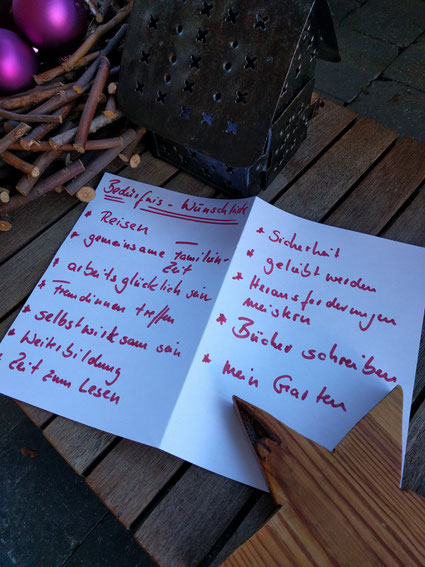 Bedürfnis - Wünschliste
* Reisen
* gemeinsame Familien-
Zeit
* arbeitsglücklich sein
* Freundinnen treffen
* selbstwirksam sein
* Weiterbildung
* Zeit zum Lesen
* Sicherheit
* geliebt werden
* Herausforderungen
meistern
* Bücher schreiben
* mein Garten